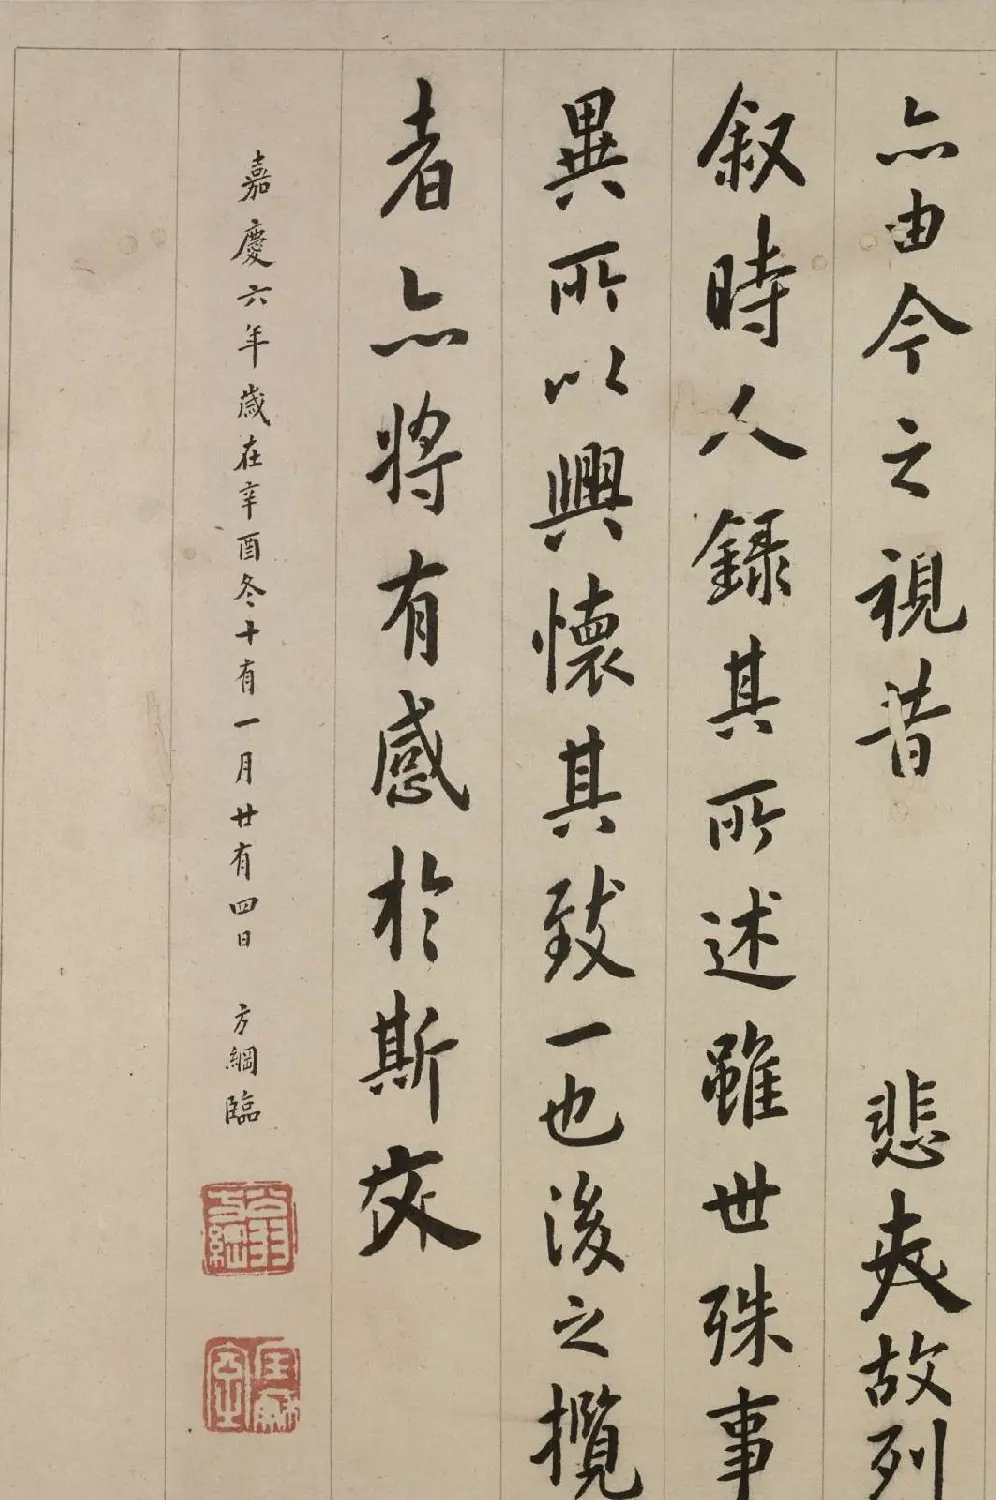 亦由今之視昔 悲夫故列
叙時人錄其所述雖世殊事
異所以興懷其致一也後之攬
者亦將有感於斯文
嘉慶六年歲在辛酉冬十有一月廿有四日 方綱臨
翁方綱